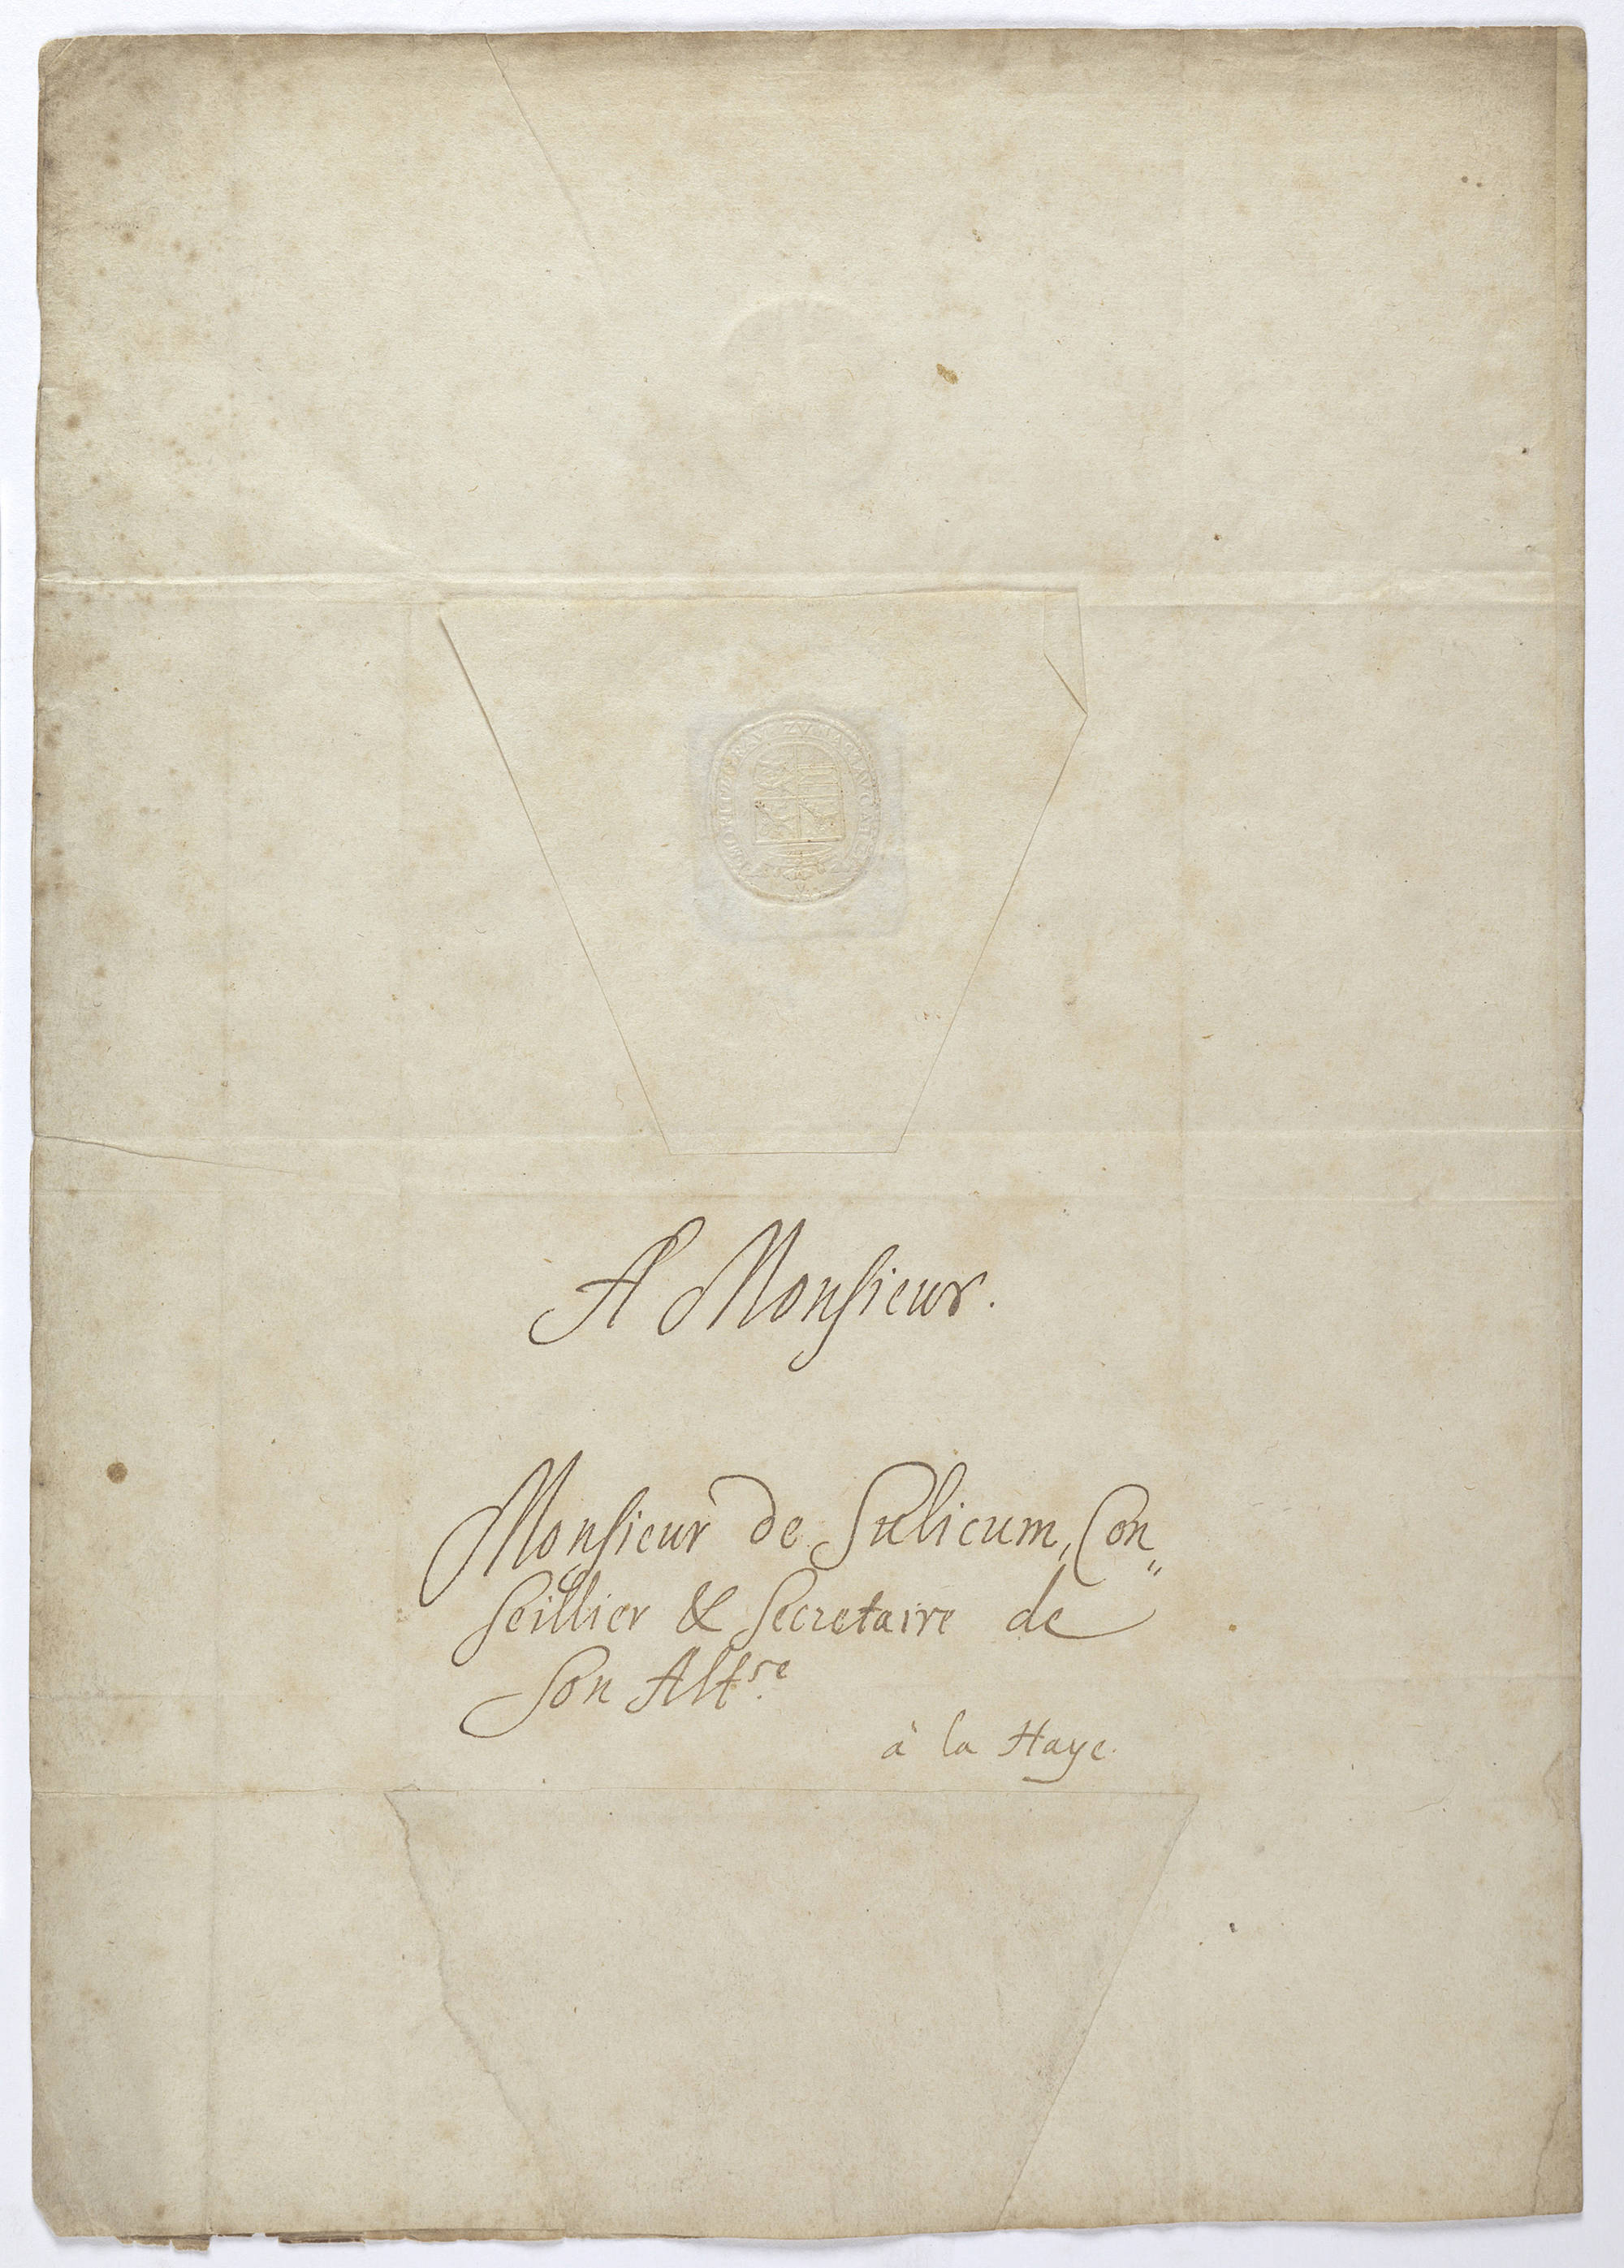 A Monsieur.
Monsieur de Sulicum, Con„
seillier & Secretaire de
Son Altse.
à la Haye.